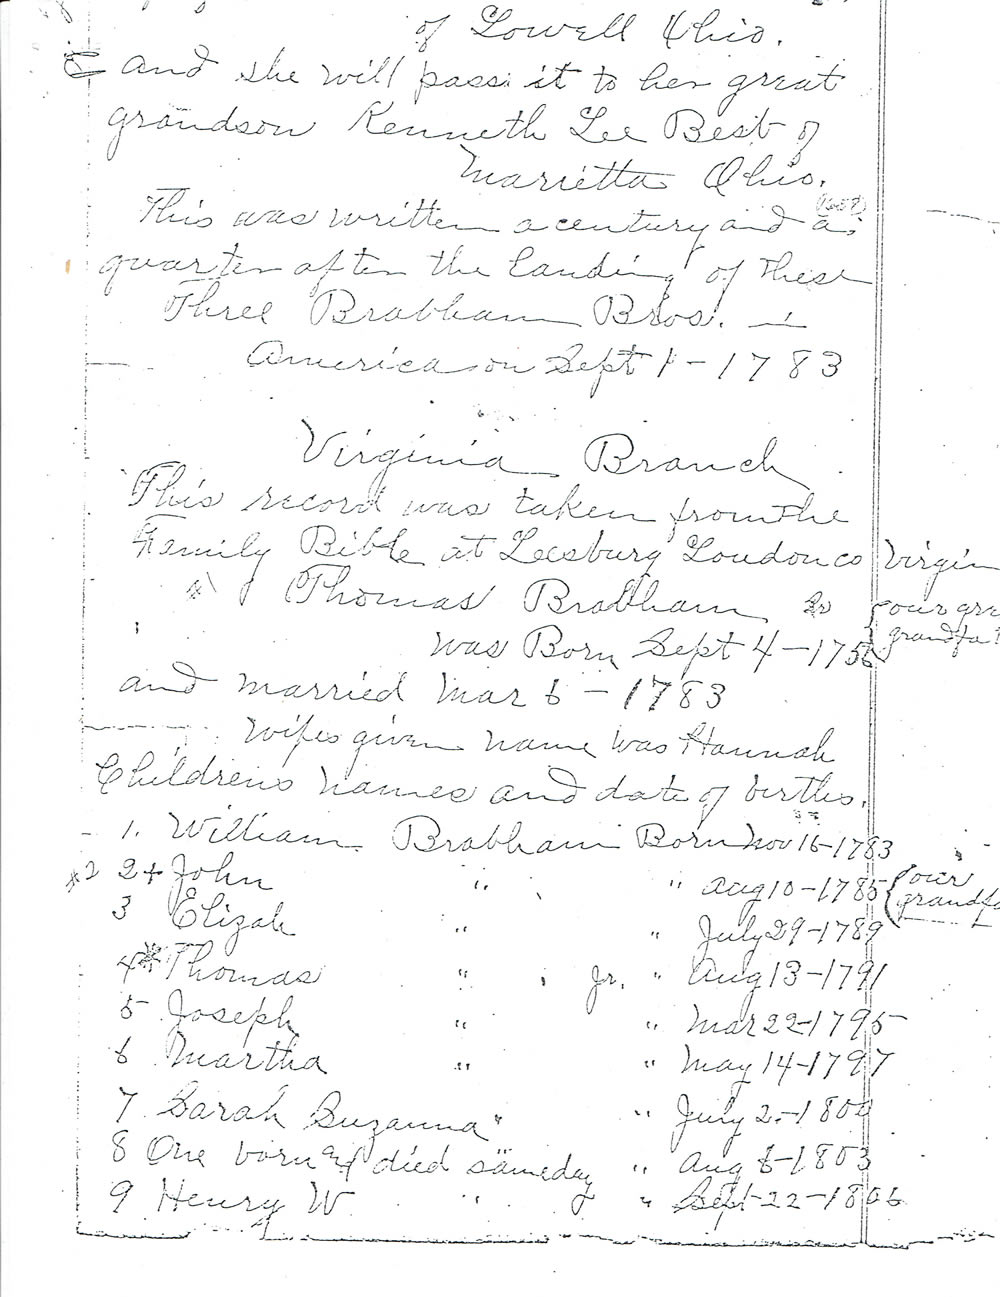 of Lowell Ohio.
and she will pass it to her great
grandson Kenneth Lee Best of
Marietta Ohio.
This was written a century and a
quarter after the landing of these
Three Brabham Bros. in
America on Sept 1 - 1783
Virginia Branch
This record was taken from the
Family Bible at Leesburg Loudon co Virgin
#1 Thomas Brabham Sr our gre
grandfat
was Born Sept 4 - 175
and married Mar 6 - 1783
Wifes given name was Hannah
Childrens names and date of births.
1. William Brabham Born Nov 16-1783
#2 2+ John " " Aug 10-1785 our
grandfa
3 Elizah " " July 29-1789
4* Thomas " Jr. " Aug 13-1791
5 Joseph " " Mar 22-1795
6 Martha " " May 14-1797
7 Sarah Suzanna " " July 2-1800
8 One born and died sameday " Aug 6-1803
9 Henry W " " Sept-22-1806